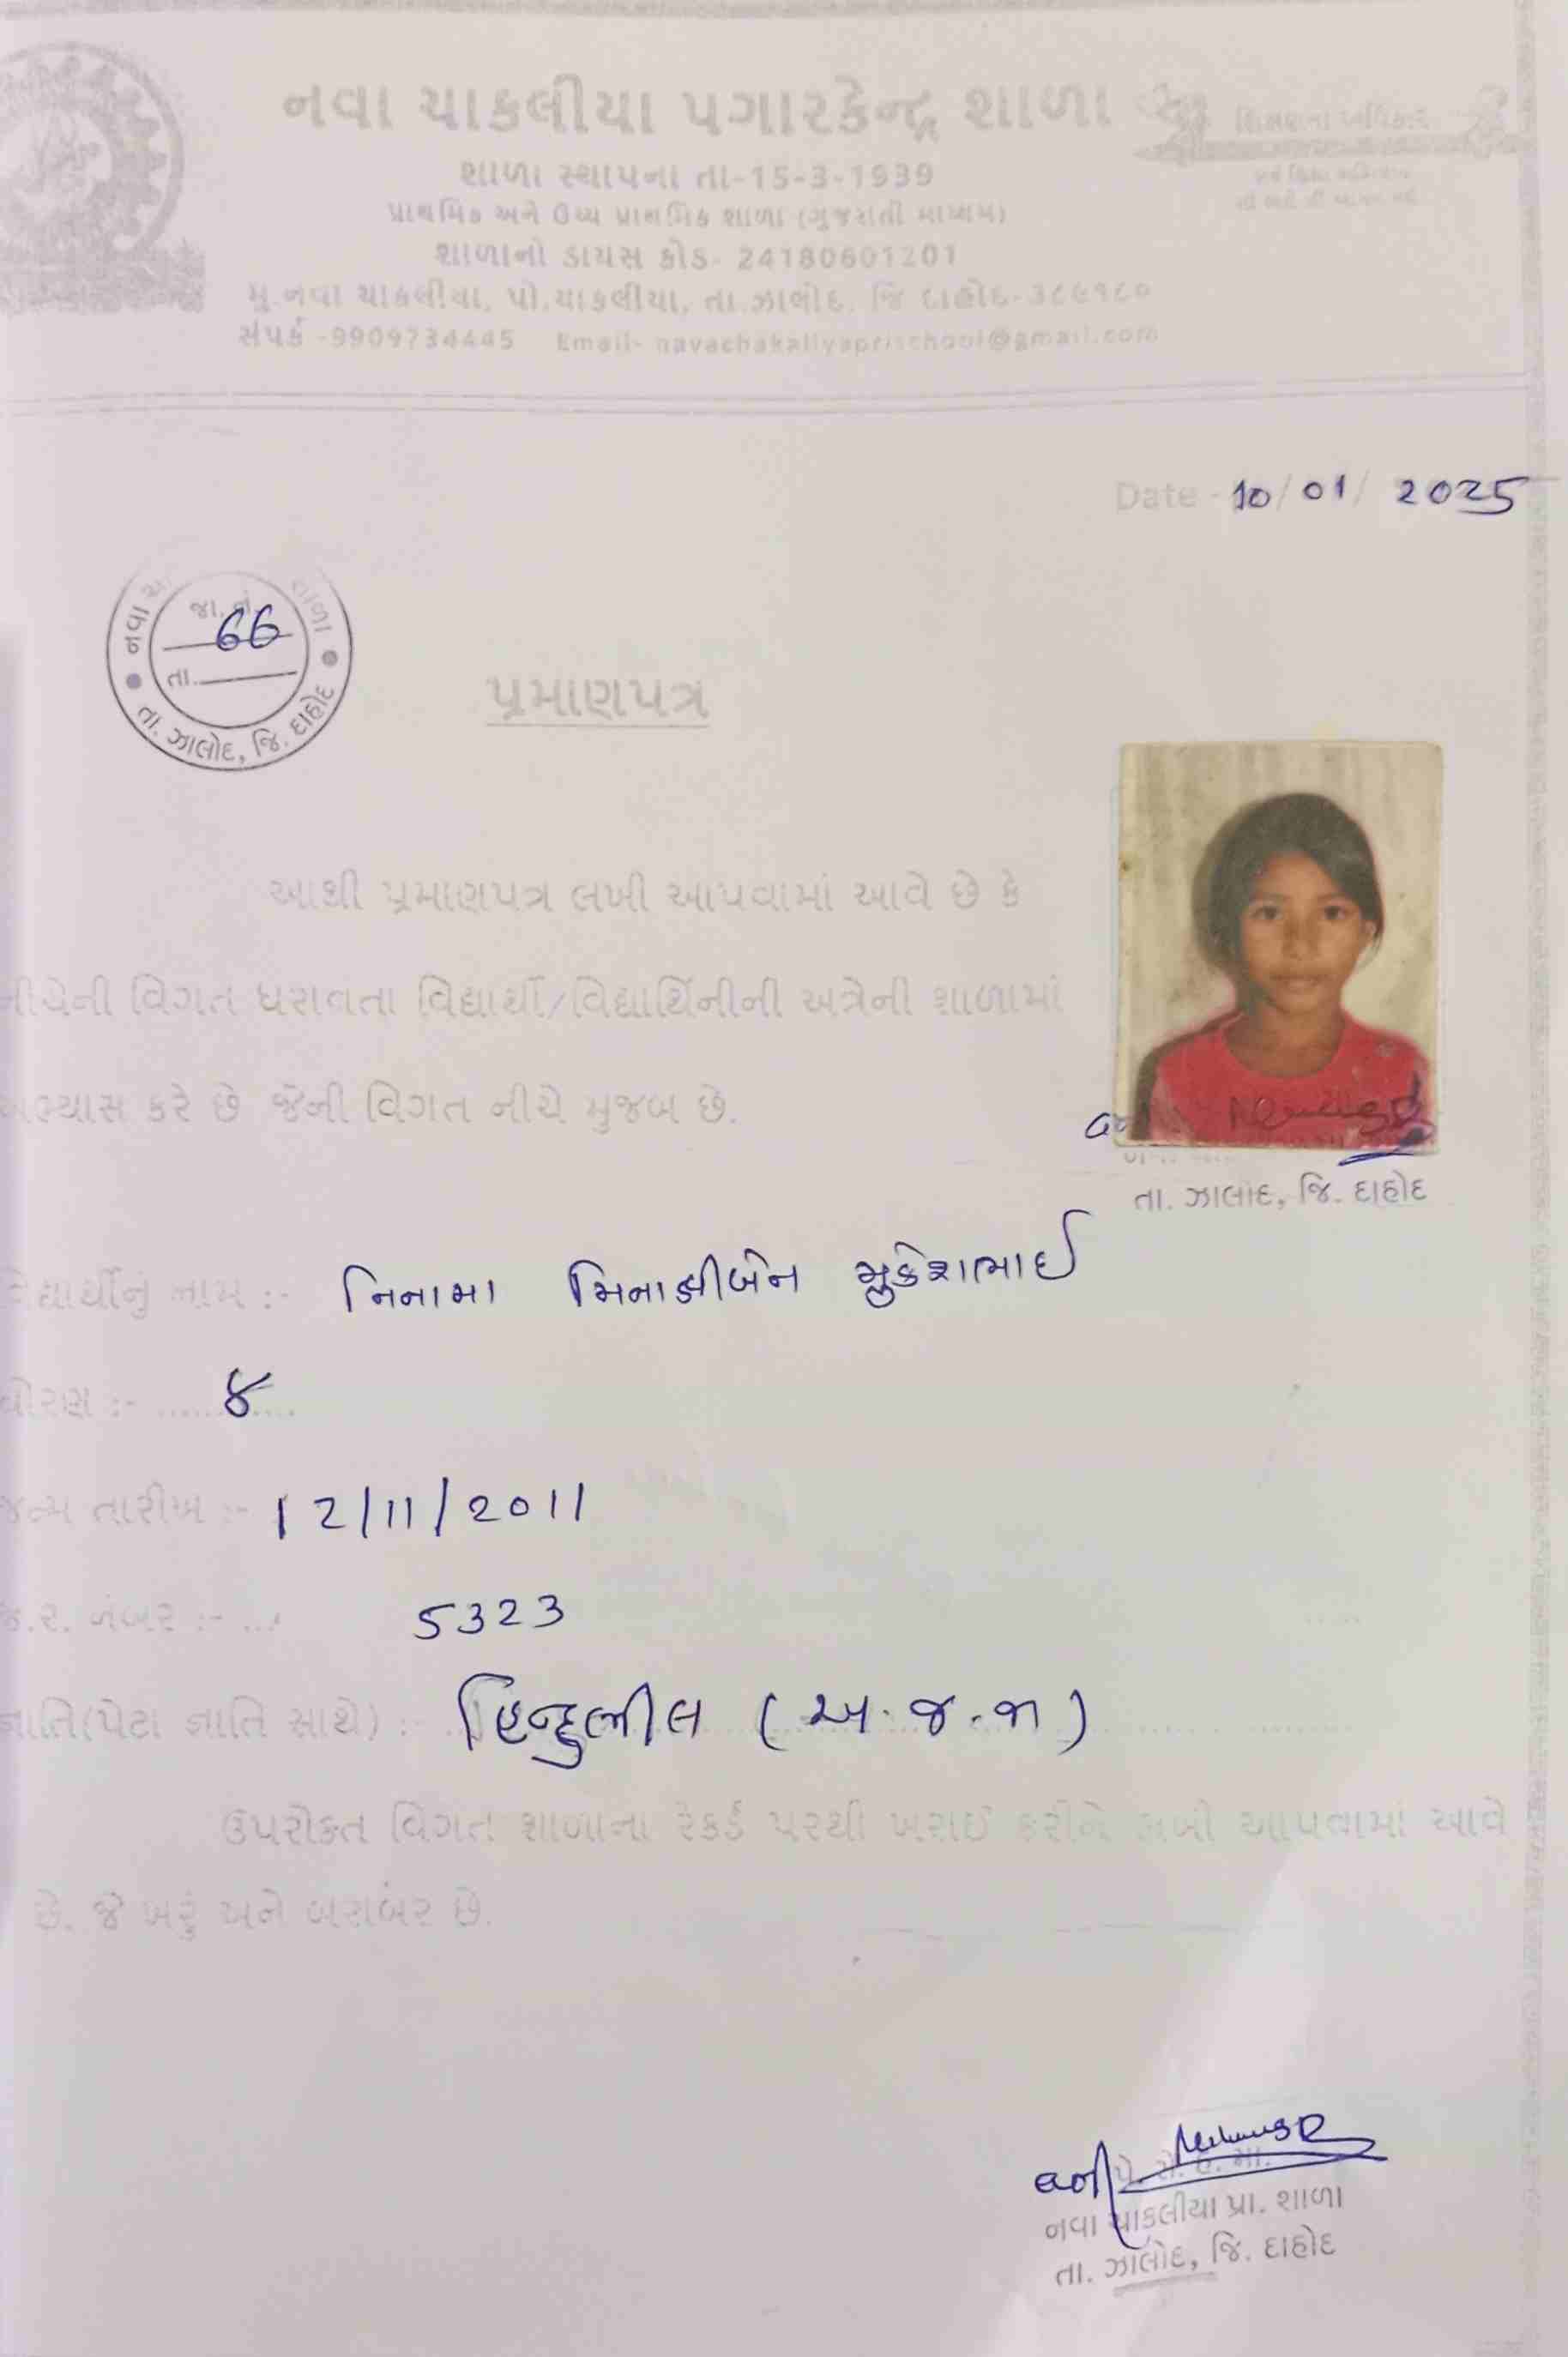 નવા ચાકલીયા પગારકેન્દ્ર શાળા
શિક્ષણનો અધિકાર
શાળા સ્થાપના તા-15-3-1939
પ્રાથમિક અને ઉચ્ચ પ્રાથમિક શાળા (ગુજરાતી માધ્યમ)
શાળાનો ડાયસ કોડ- 24180601201
મુ.નવા ચાકલીયા, પો.ચાકલીયા, તા.ઝાલોદ, જિ દાહોદ-૩૮૯૧૮૦
સંપર્ક -9909734445 Email- navachakaliyaprischool@gmail.com
Date - 10/01/ 2025
નવા
શાળા
જા.નં. 66
તા.
તા. ઝાલોદ, જિ. દાહોદ
પ્રમાણપત્ર
આથી પ્રમાણપત્ર લખી આપવામાં આવે છે કે
નીચેની વિગત ધરાવતા વિદ્યાર્થી/વિદ્યાર્થિનીની અત્રેની શાળામાં
અભ્યાસ કરે છે જેની વિગત નીચે મુજબ છે.
તા. ઝાલોદ, જિ. દાહોદ
વિદ્યાર્થીનું નામ :- નિનામા મિનાક્ષીબેન મુકેશભાઈ
ધોરણ :- ૪
જન્મ તારીખ :- 12/11/2011
જ.ર. નંબર :- 5323
જ્ઞાતિ(પેટા જ્ઞાતિ સાથે) :- હિન્દુભીલ (અ.જ.જા)
ઉપરોક્ત વિગત શાળાના રેકર્ડ પરથી ખરાઈ કરીને લખી આપવામાં આવે
છે. જે ખરું અને બરાબર છે.
નવા ચાકલીયા પ્રા. શાળા
તા. ઝાલોદ, જિ. દાહોદ